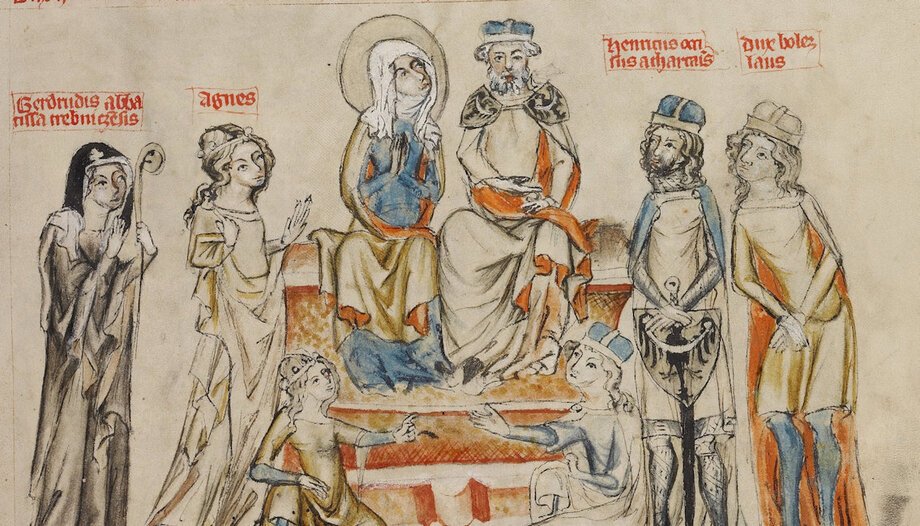 Gerdrudis abba
tissa trebniczensis
Agnes
henricus occi
sus a thartaris
dux bolez
laus